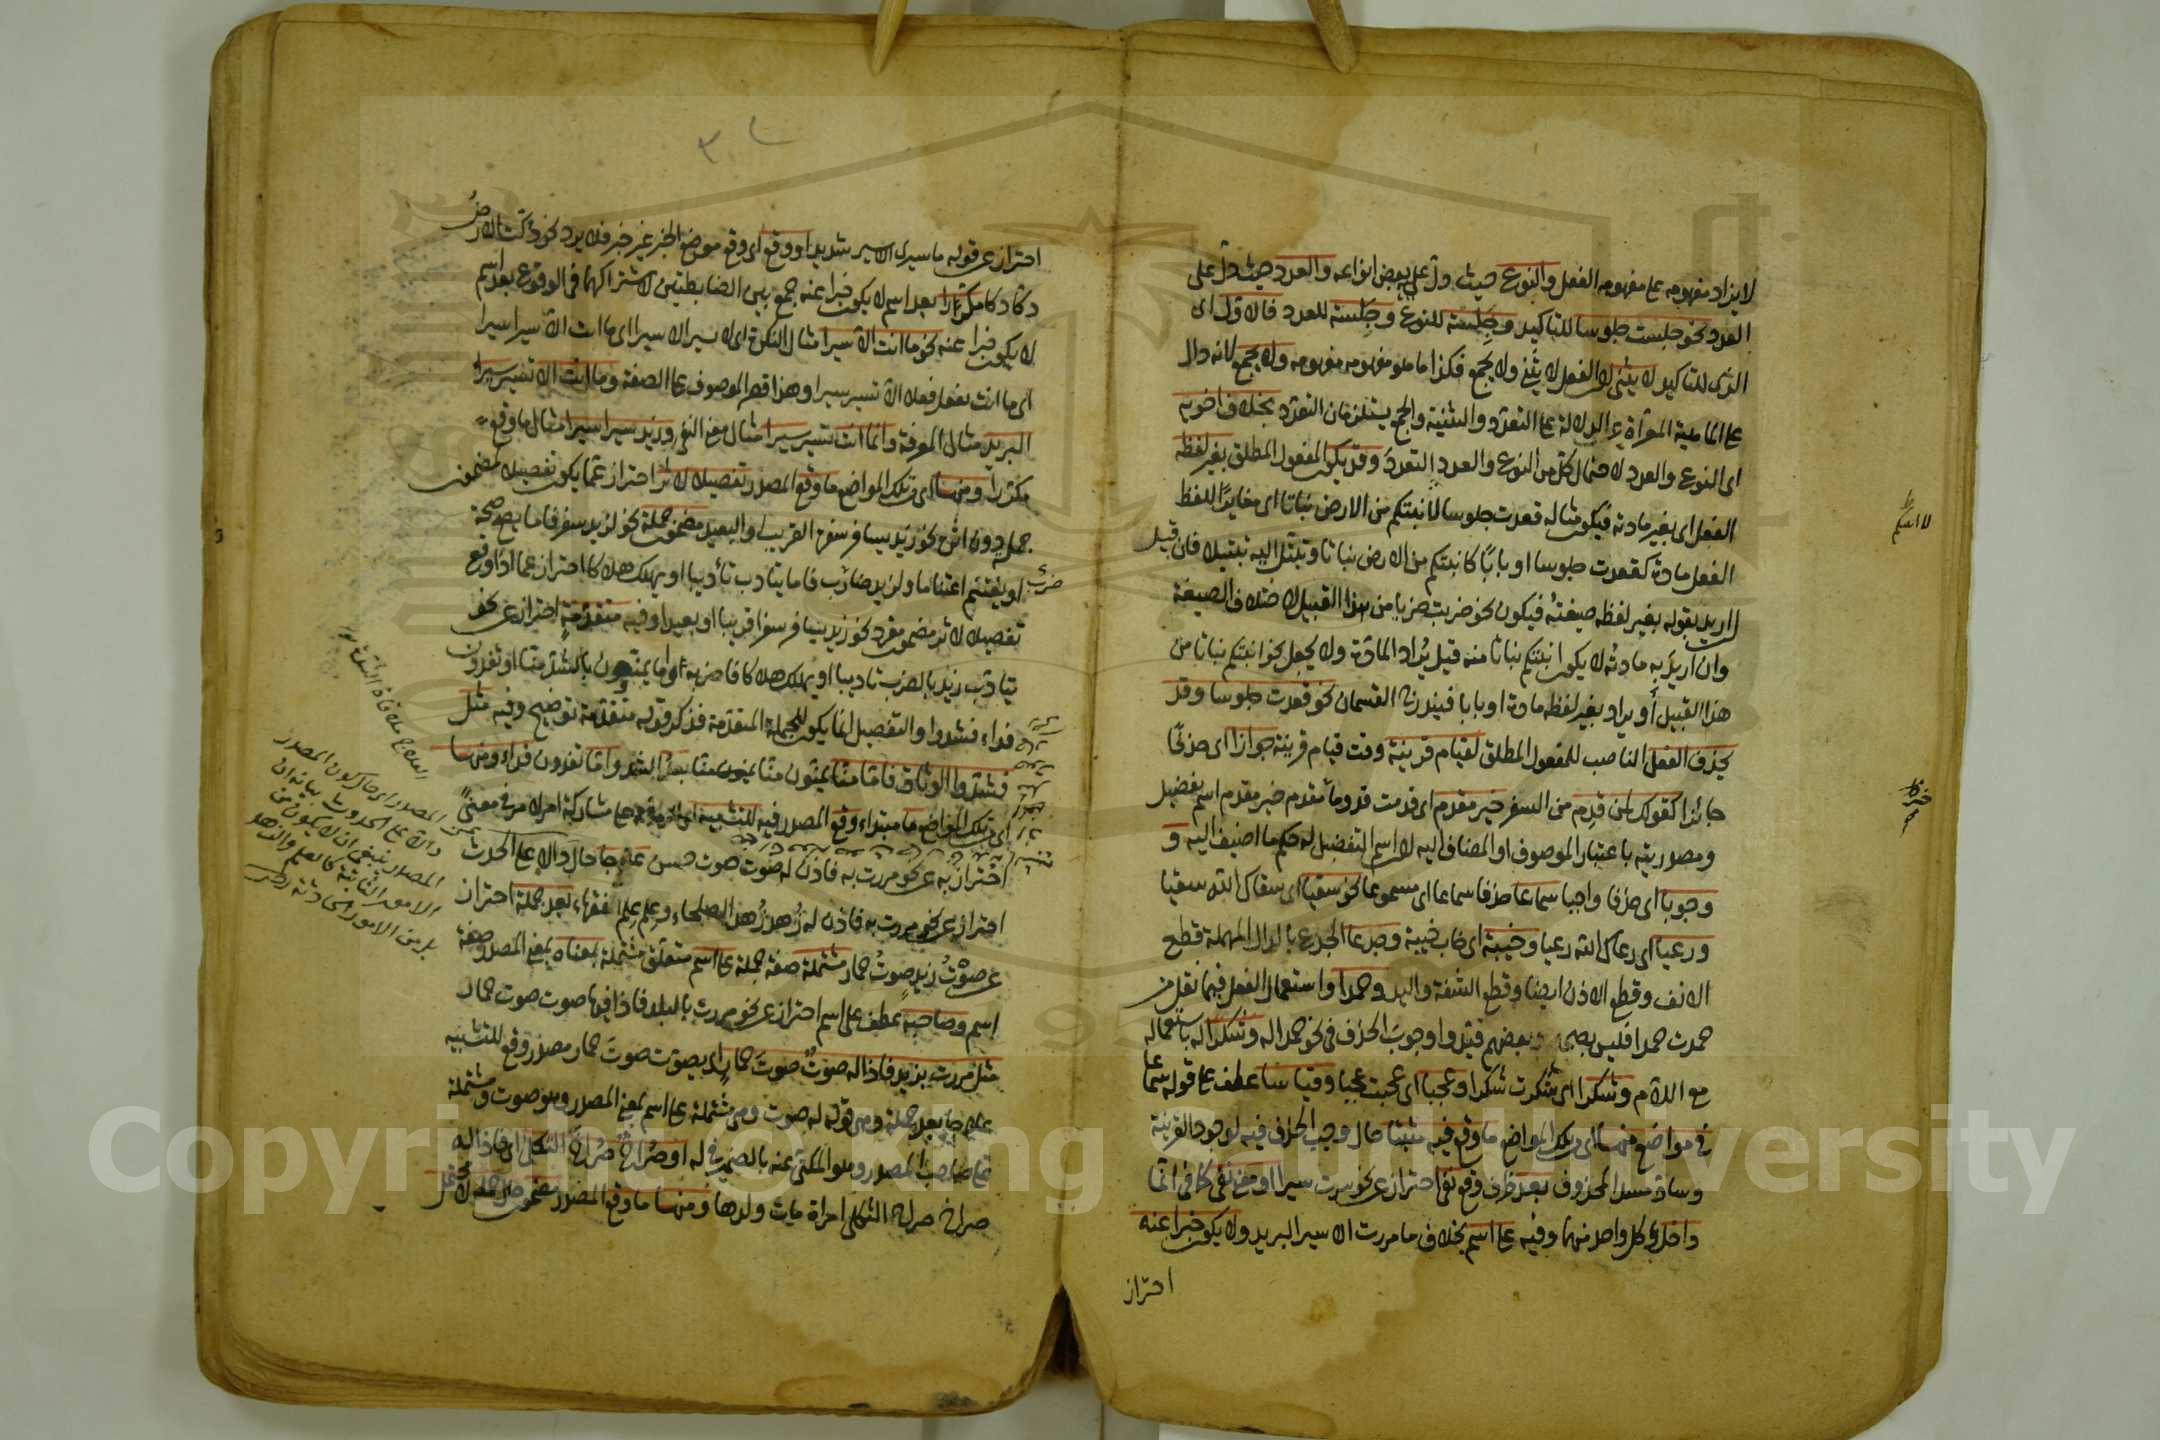 لا يزاد مفهومه على مفهومه الفعل والنوع حيث دل على بعض انواعه والعدد حيث دل على
العدد نحو جلست جلوسا للتاكيد وجِلسة للنوع وجَلسة للعدد فالاول اى
الذى للتاكيد لا يثنى لان الفعل لا يثنى ولا يجمع فكذا ما هو مفهومه مفهومه ولا يجمع لانه دال
على الماهية المعراة عن الدلالة على التعدد والتثنية والجمع يستلزمان التعدد بخلاف اخويه
اى النوع والعدد لاحتمال كل من النوع والعدد التعدد وقد يكون المفعول المطلق بغير لفظه
الفعل اى بغير مادته فيكون مثاله قعدت جلوسا لا انبتكم من الارض نباتا اى مغايرا للفظ
الفعل مادة كقعدت جلوسا او بابًا كانبتكم من الارض نباتا وتبتل اليه تبتيلا فان قيل
ان اريد بقوله بغير لفظه صيغتُه فيكون نحو ضربت ضربا من هذا القبيل لاختلاف الصيغة
وان اريد به مادتُه لا يكون انبتكم نباتا منه قيل يُراد المادة ولا يجعل نحو انبتكم نباتا من
هذا القبيل أو يراد بغير لفظه مادة او بابا فيندرج القسمان نحو قعدت جلوسا وقد
يحذف الفعل الناصب للمفعول المطلق لقيام قرينة وقت قيام قرينة جوازا اى حذفًا
جائزا كقولك لمن قدِم من السفر خير مقدم اى قدمت قدوما مقدم خير مقدم اسم تفضيل
ومصدريته باعتبار الموصوف او المضاف اليه لان اسم التفضيل له حكم ما اضيف اليه و
وجوبا اى حذفا واجبا سماعا حذفا سماعا اى مسموعا نحو سقيا اى سقاك الله سقيا
ورعيا اى رعاك الله رعيا وخيبة اى خاب خيبة وجدعا الجدع بالدال المهملة قطع
الانف وقطع الاذن ايضا وقطع الشفة واليد وحمدا واستعمال الفعل فيما نقل من
حمدت حمدا فليس بصحيح وبعضهم قيدوا وجوب الحذف فى نحو حمدا له وشكرا له باستعماله
مع اللام وشكرا اى شكرت شكرا وعجبا اى عجبت عجبا وقياسا عطف على قوله سماعا
فى مواضع منها اى من تلك المواضع ما وقع فيه مثبتا حال وجب الحذف فيه لوجود القرينة
وسادّ مسد المحذوف بعد ظرف وقع نفى احتراز عن نحو سرت سيرا او معنى نفى كما فى انما
داخل على كل واحد منهما وفيه على اسم بخلاف ما مررت الا سير البريد ولا يكون خبرا عنه
احتراز
لا انبتكم
احتراز عن قوله ما سيرى الا سير شديد او وقع اى وقع موضع الخبر غير خبر فلا يرد نحو دكّت الارضُ
دكا دكا مكررا بعد اسم لا يكون خبرا عنه جمع بين الضابطتين لاشتراكهما فى الوقوع بعد اسم
لا يكون خبرا عنه نحو ما انت الا سيرا مثال النكرة اى لا يسير الا سيرا اى ما انت الا تسير سيرا
اى ما انت تفعل فعلا الا تسير سيرا وهذا قصر الموصوف على الصفة وما انت الا تسير سيرا
البريد مثال المعرفة وانما انت تسير سيرا مثال معنى النفى وزيد سيرا سيرا مثال ما وقع
مكررا ومنها اى من تلك المواضع ما وقع المصدر تفصيلا لاثر احتراز عما يكون تفصيلا لمضمون
جملة دون اثر نحو زيد يسافر سفره القريب او البعيد مضمون جملة نحو لزيد سفر فاما يصح صحة
او يغتنم اغتناما ولزيد ضرب فاما يتادب تأديبا او يهلك هلاكا احتراز عما اذا وقع
ضرب
تفصيلا لاثر مضمون مفرد نحو زيد يسافر سفرا قريبا او بعيدا وفيه متقدمةٍ احتراز عن نحو
يتادب زيد بالضرب تاديبا او يهلك هلاكا فاضربه او اما يمنّون بالشدّ منّا او تفدون
فداء فشدوا والتفصيل انما يكون للجملة المتقدمة فذكر قوله متقدمة توضيح وفيه مثل
فشدّوا الوثاق فاما منّا تمنّون منّا تمنون منّا بعدُ الشد واما تفدون فداء ومنها
اى من تلك المواضع ما مبتداء وقع المصدر فيه للتشبيه اى للدلالة على مشاركة امر لامر فى معنىً
احتراز به عن نحو مررت به فاذن له صوت صوت حسن علاجا حال دالا على الحدث
احتراز عن نحو مررت به فاذن له زُهدٌ زُهدُ الصلحاء وعِلم عِلم الفقهاء بعد جملة احتراز
عن صوْتُ زيدٍ صوتُ حمار مشتملة صفة جملة على اسم متعلق مشتملة بمعناه بمعنى المصدر وصفة
اسم وصاحبه عطف على اسم احتراز عن نحو مررت بالبلد فاذا فيها صوت صوت حمار
مثل مررت بزيد فاذا له صوتٌ صوتَ حمارٍ اى يصوّت صوتَ حمار مصدر وقع للتشبيه
علاجا بعد جملة وهى قوله له صوت وهى مشتملة على اسم بمعنى المصدر وهو صوت ومشتملة
على صاحب المصدر وهو المكنّى عنه بالضمير فى له او صُراخٌ صُراخَ الثكلى اى فاذا له
صراخ صراخ الثكلى امراة مات ولدها ومنها ما وقع المصدر مضمون جملة لا محتمل
المصدر ان يكون المصدر
دالّة على الحدوث بيانه ان
المصدر ينبغى ان لا يكون من
الامور الثابتة كالعلم والزهد
بل من الامور الحادثة